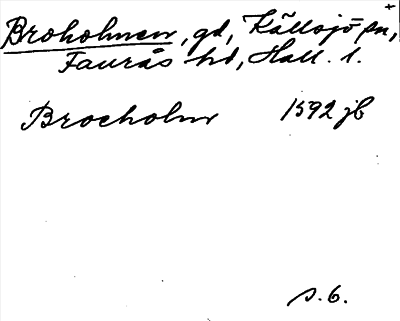 Broholmen, gd, Källsjö sn,
Faurås hd, Hall. l.
Brocholm 1592 jb
s. 6.